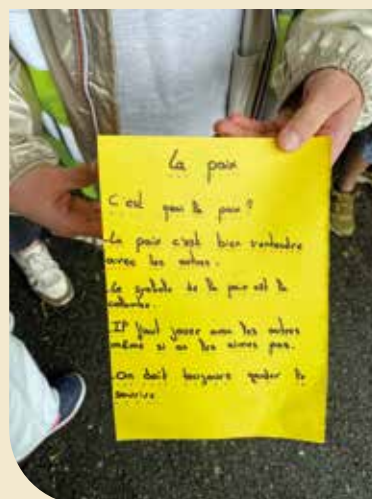 La paix
C'est quoi la paix ?
La paix c'est bien s'entendre
avec les autres.
Le symbole de la paix est la
colombe.
Il faut jouer avec les autres
même si on les aimes pas.
On doit toujours garder le
sourire